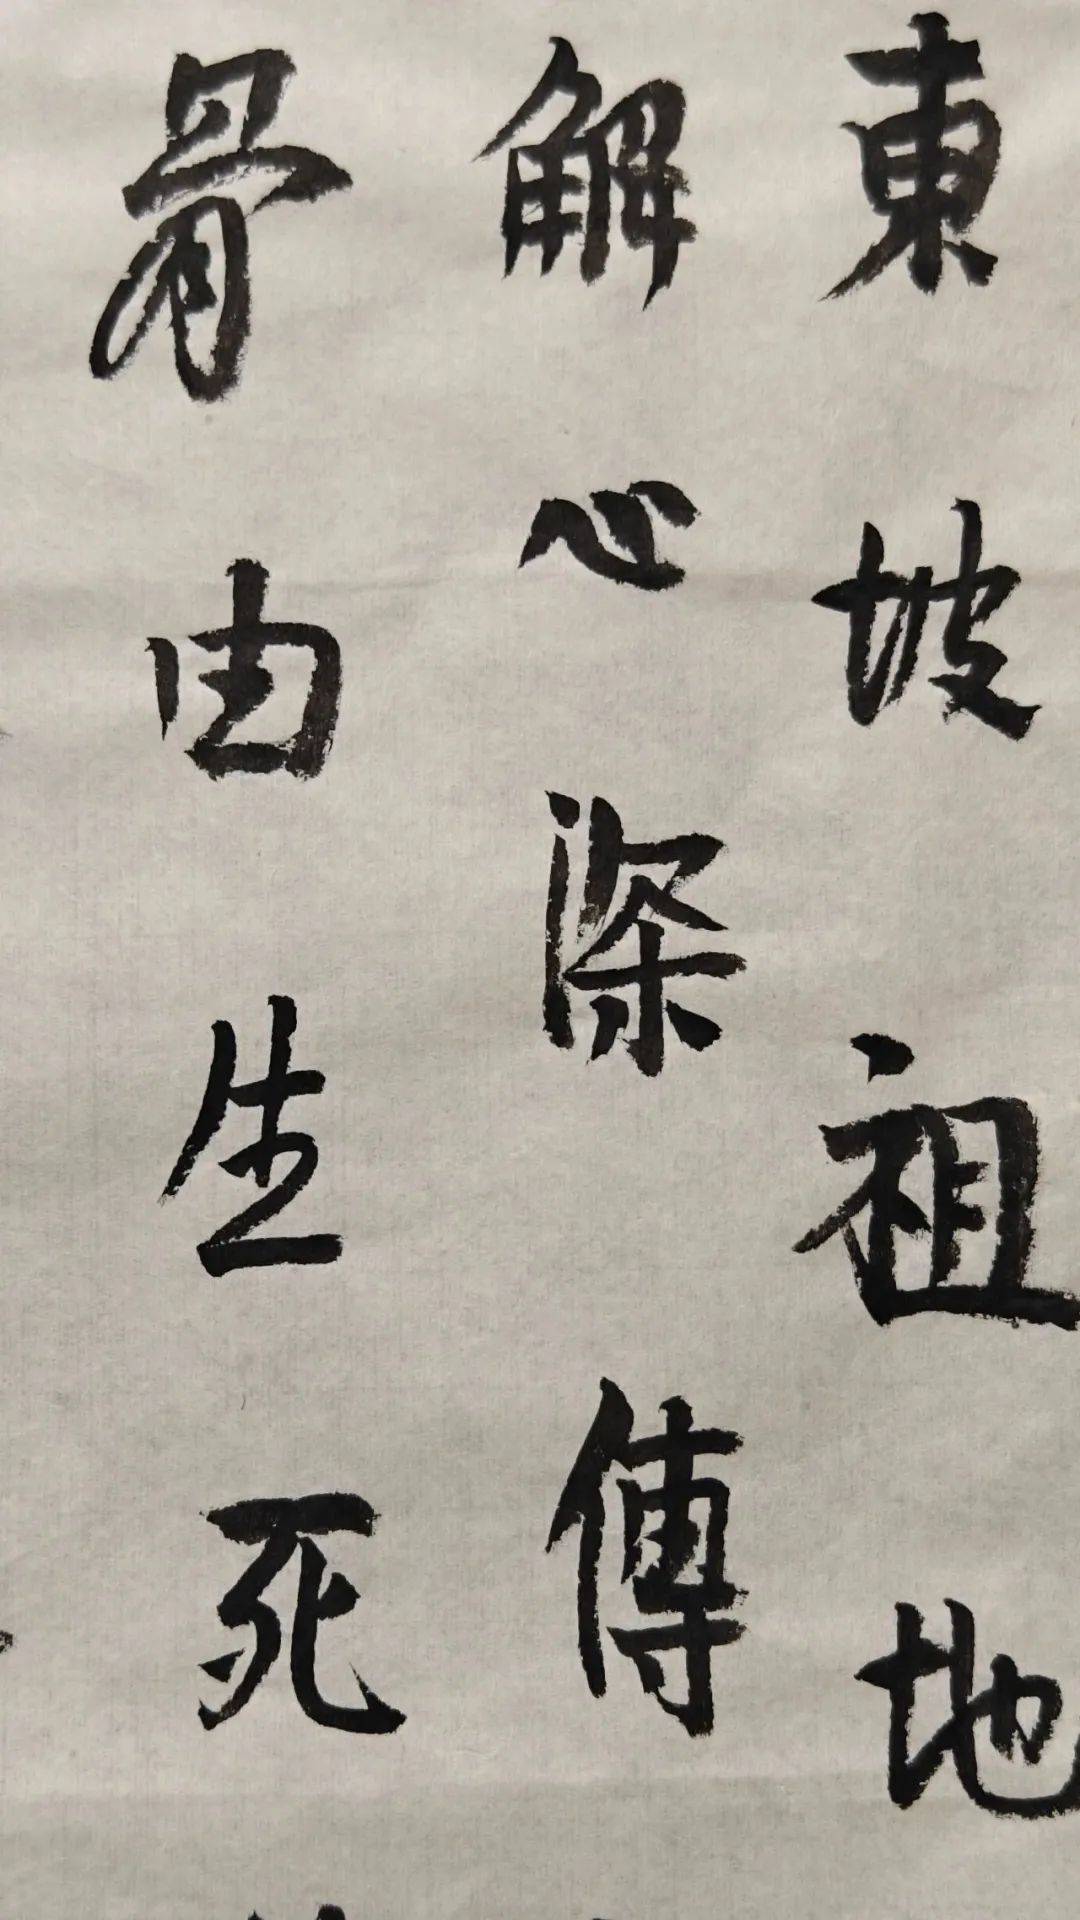 東坡祖地
解心深傳
骨由生死